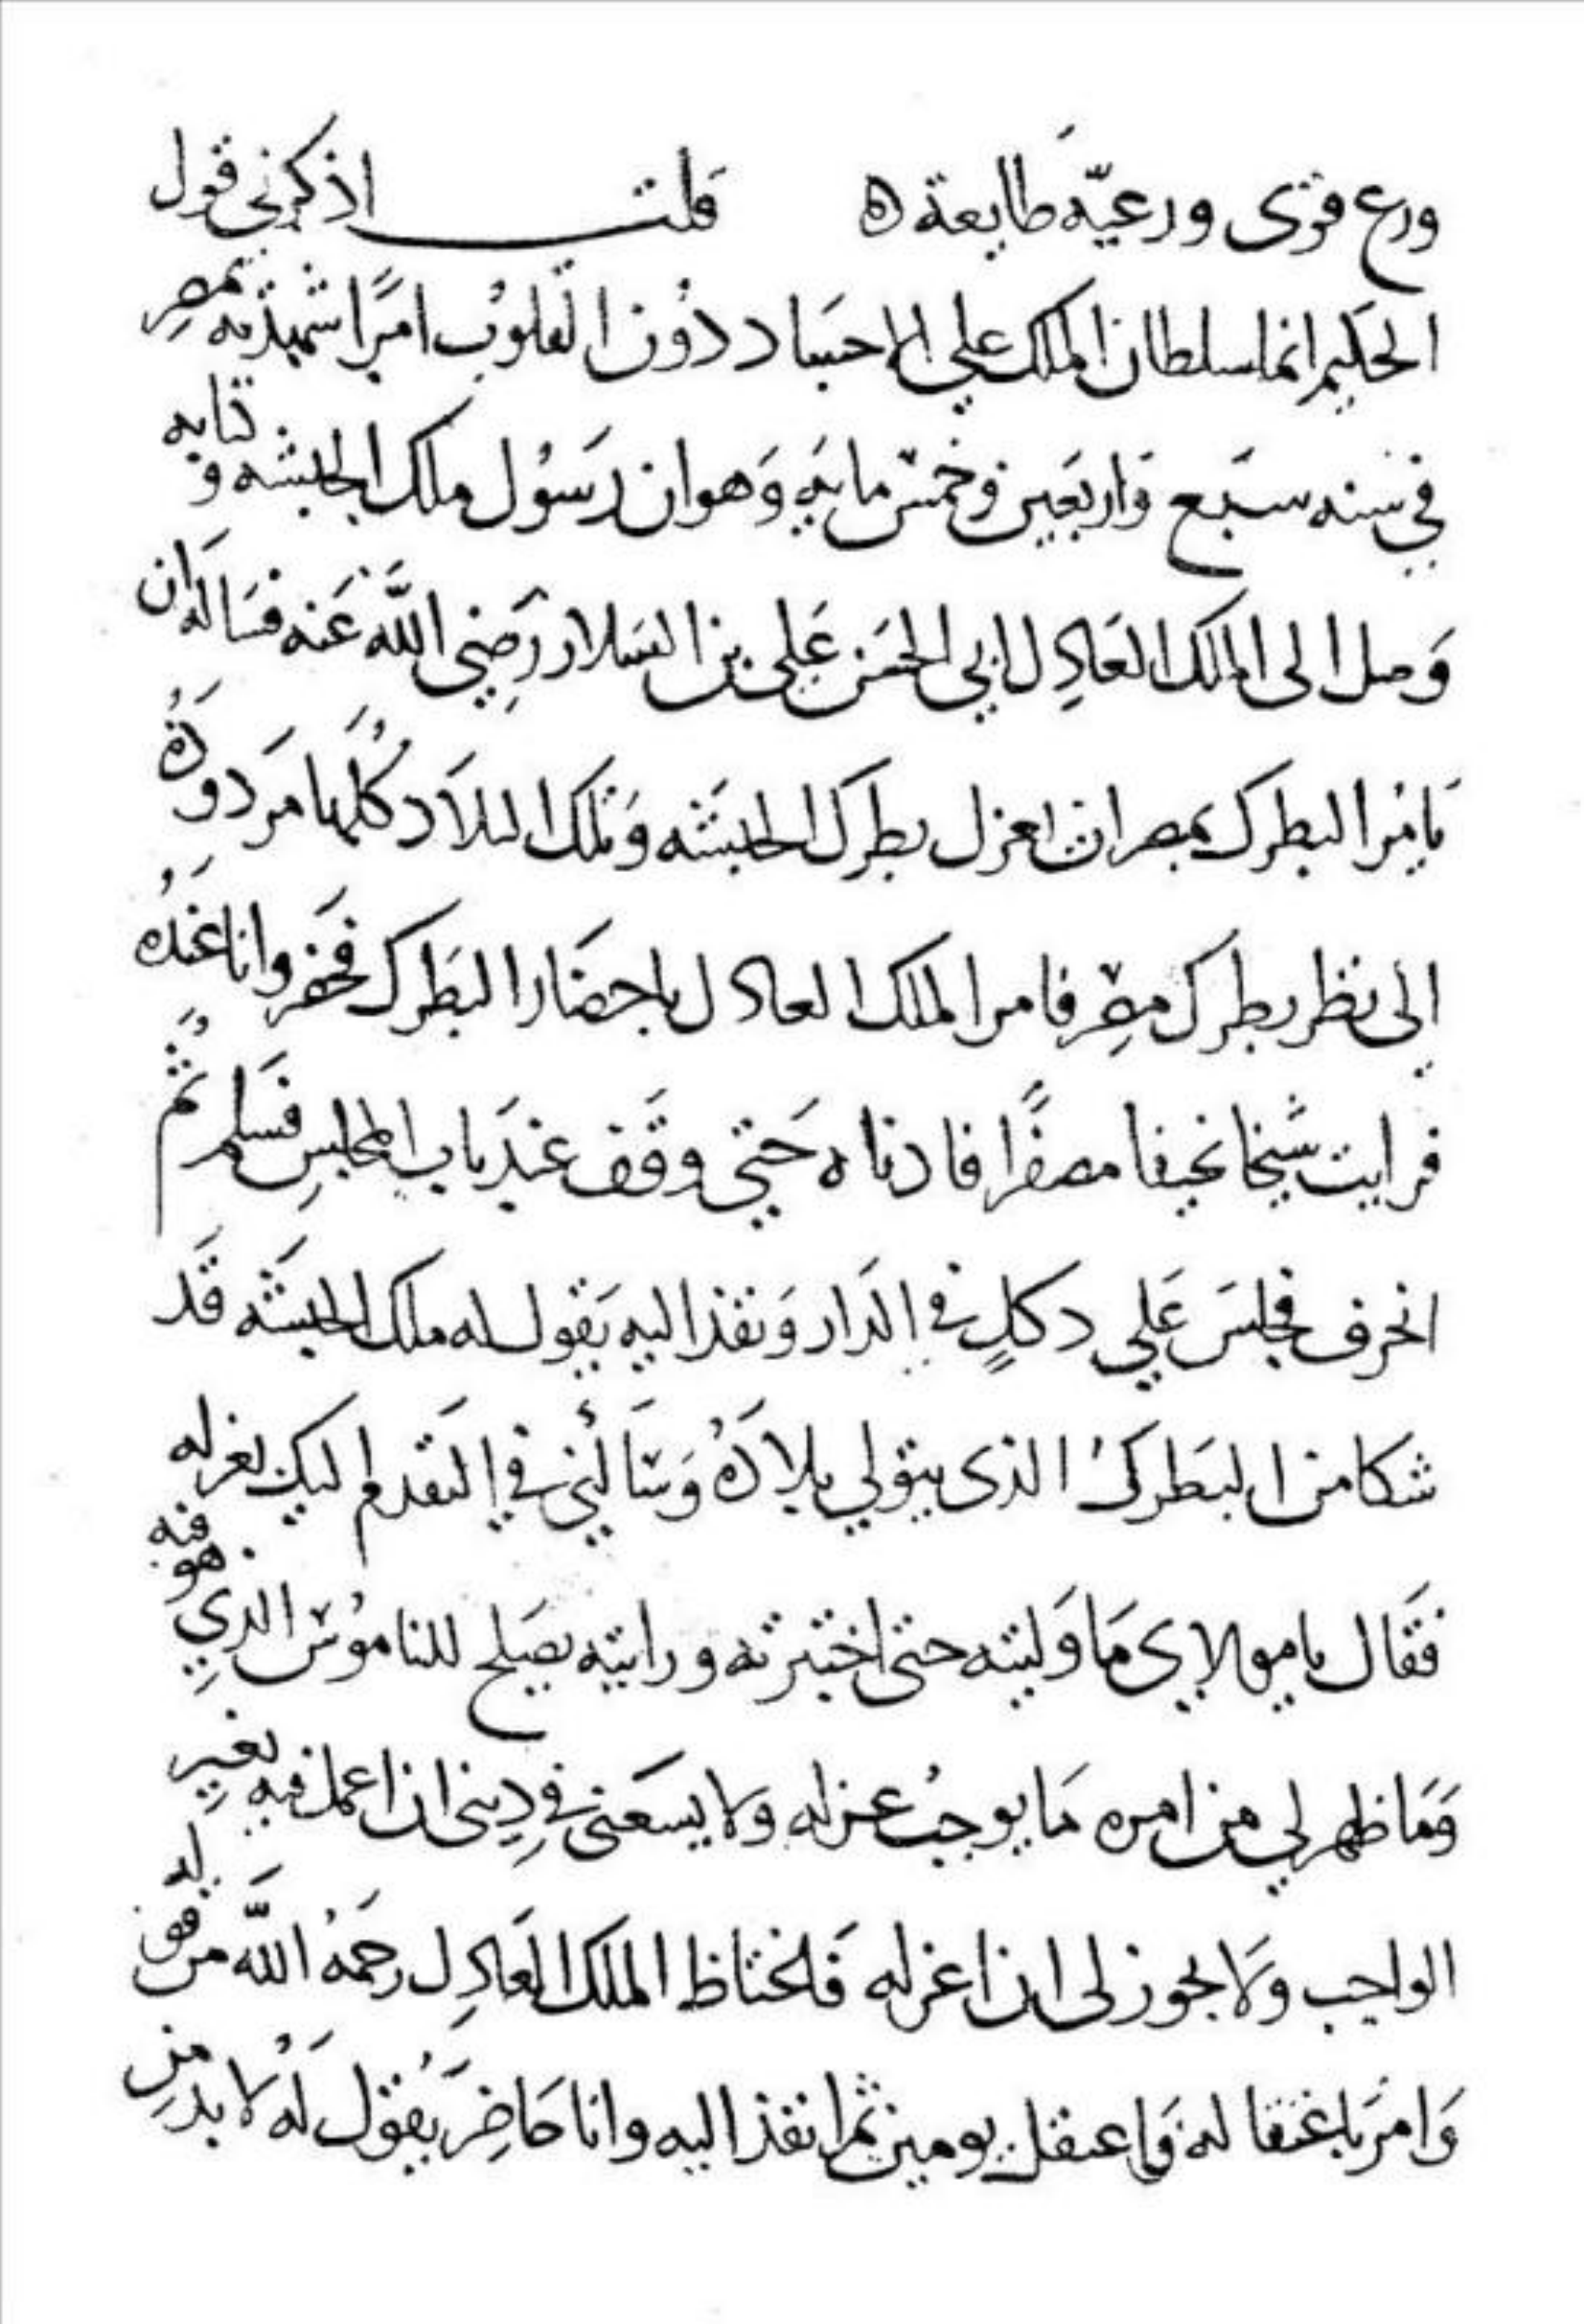 ورع قوى ورعيّه طايعة ه قلت اذكرنى قول
الحكيم انما سلطان الملك على الاجساد دون القلوب امرًا شهدته بمصر
في سنه سبع واربعين وخمس مايه وهو ان رسول ملك الحبشه وكتابه
وصل الى الملك العادل ابي الحسن علي بن السلار رضي الله عنه فساله ان
يامر البطرك بمصر ان اعزل بطرك الحبشه وتلك البلاد كلها مردودة
الى نظر بطرك مصر فامر الملك العادل باحضار البطرك فحضر وانا عنده
فرايت شيخا نحيفا مصفرا فادناه حتى وقف عند باب المجلس فسلم ثم
انحرف فجلس علي دكلٍ في الدار ونفذ اليه يقول له ملك الحبشه قد
شكا من البطرك الذى يتولي بلاده وسَألني في التقدم اليك بعزله
فقال يا مولاي ما وليته حتى اختبرته ورايته يصلح للناموس الذي هو فيه
وما ظهر لي من امره ما يوجب عزله ولا يسعنى في دينى ان اعمل فيه بغير
الواجب ولا يجوز لى ان اعزله فاختاظ الملك العادل رحمه الله من قوله
وامر باعتقاله فاعتقل يومين ثم انفذ اليه وانا حاضر يقول له لا بد من